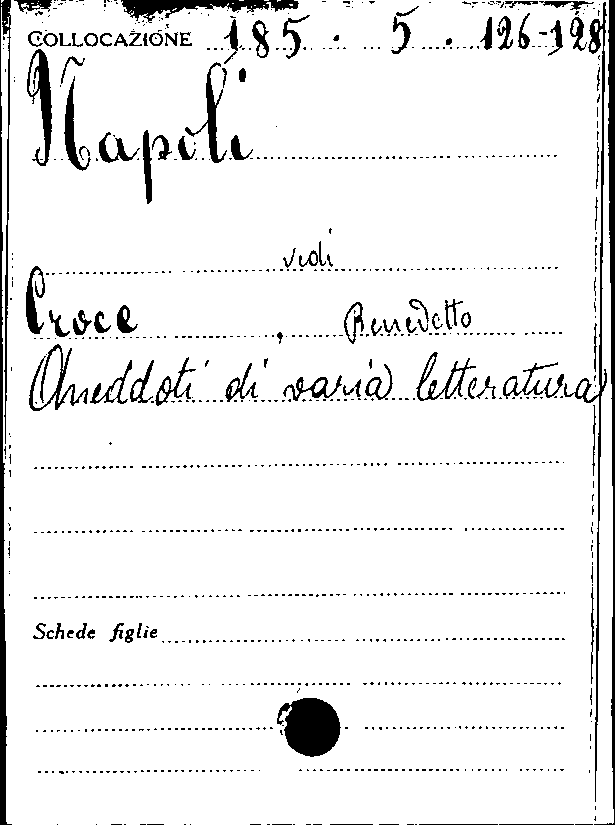 COLLOCAZIONE 185. 5. 126-128
Napoli
vedi
Croce, Benedetto
Aneddoti di varia letteratura
Schede figlie